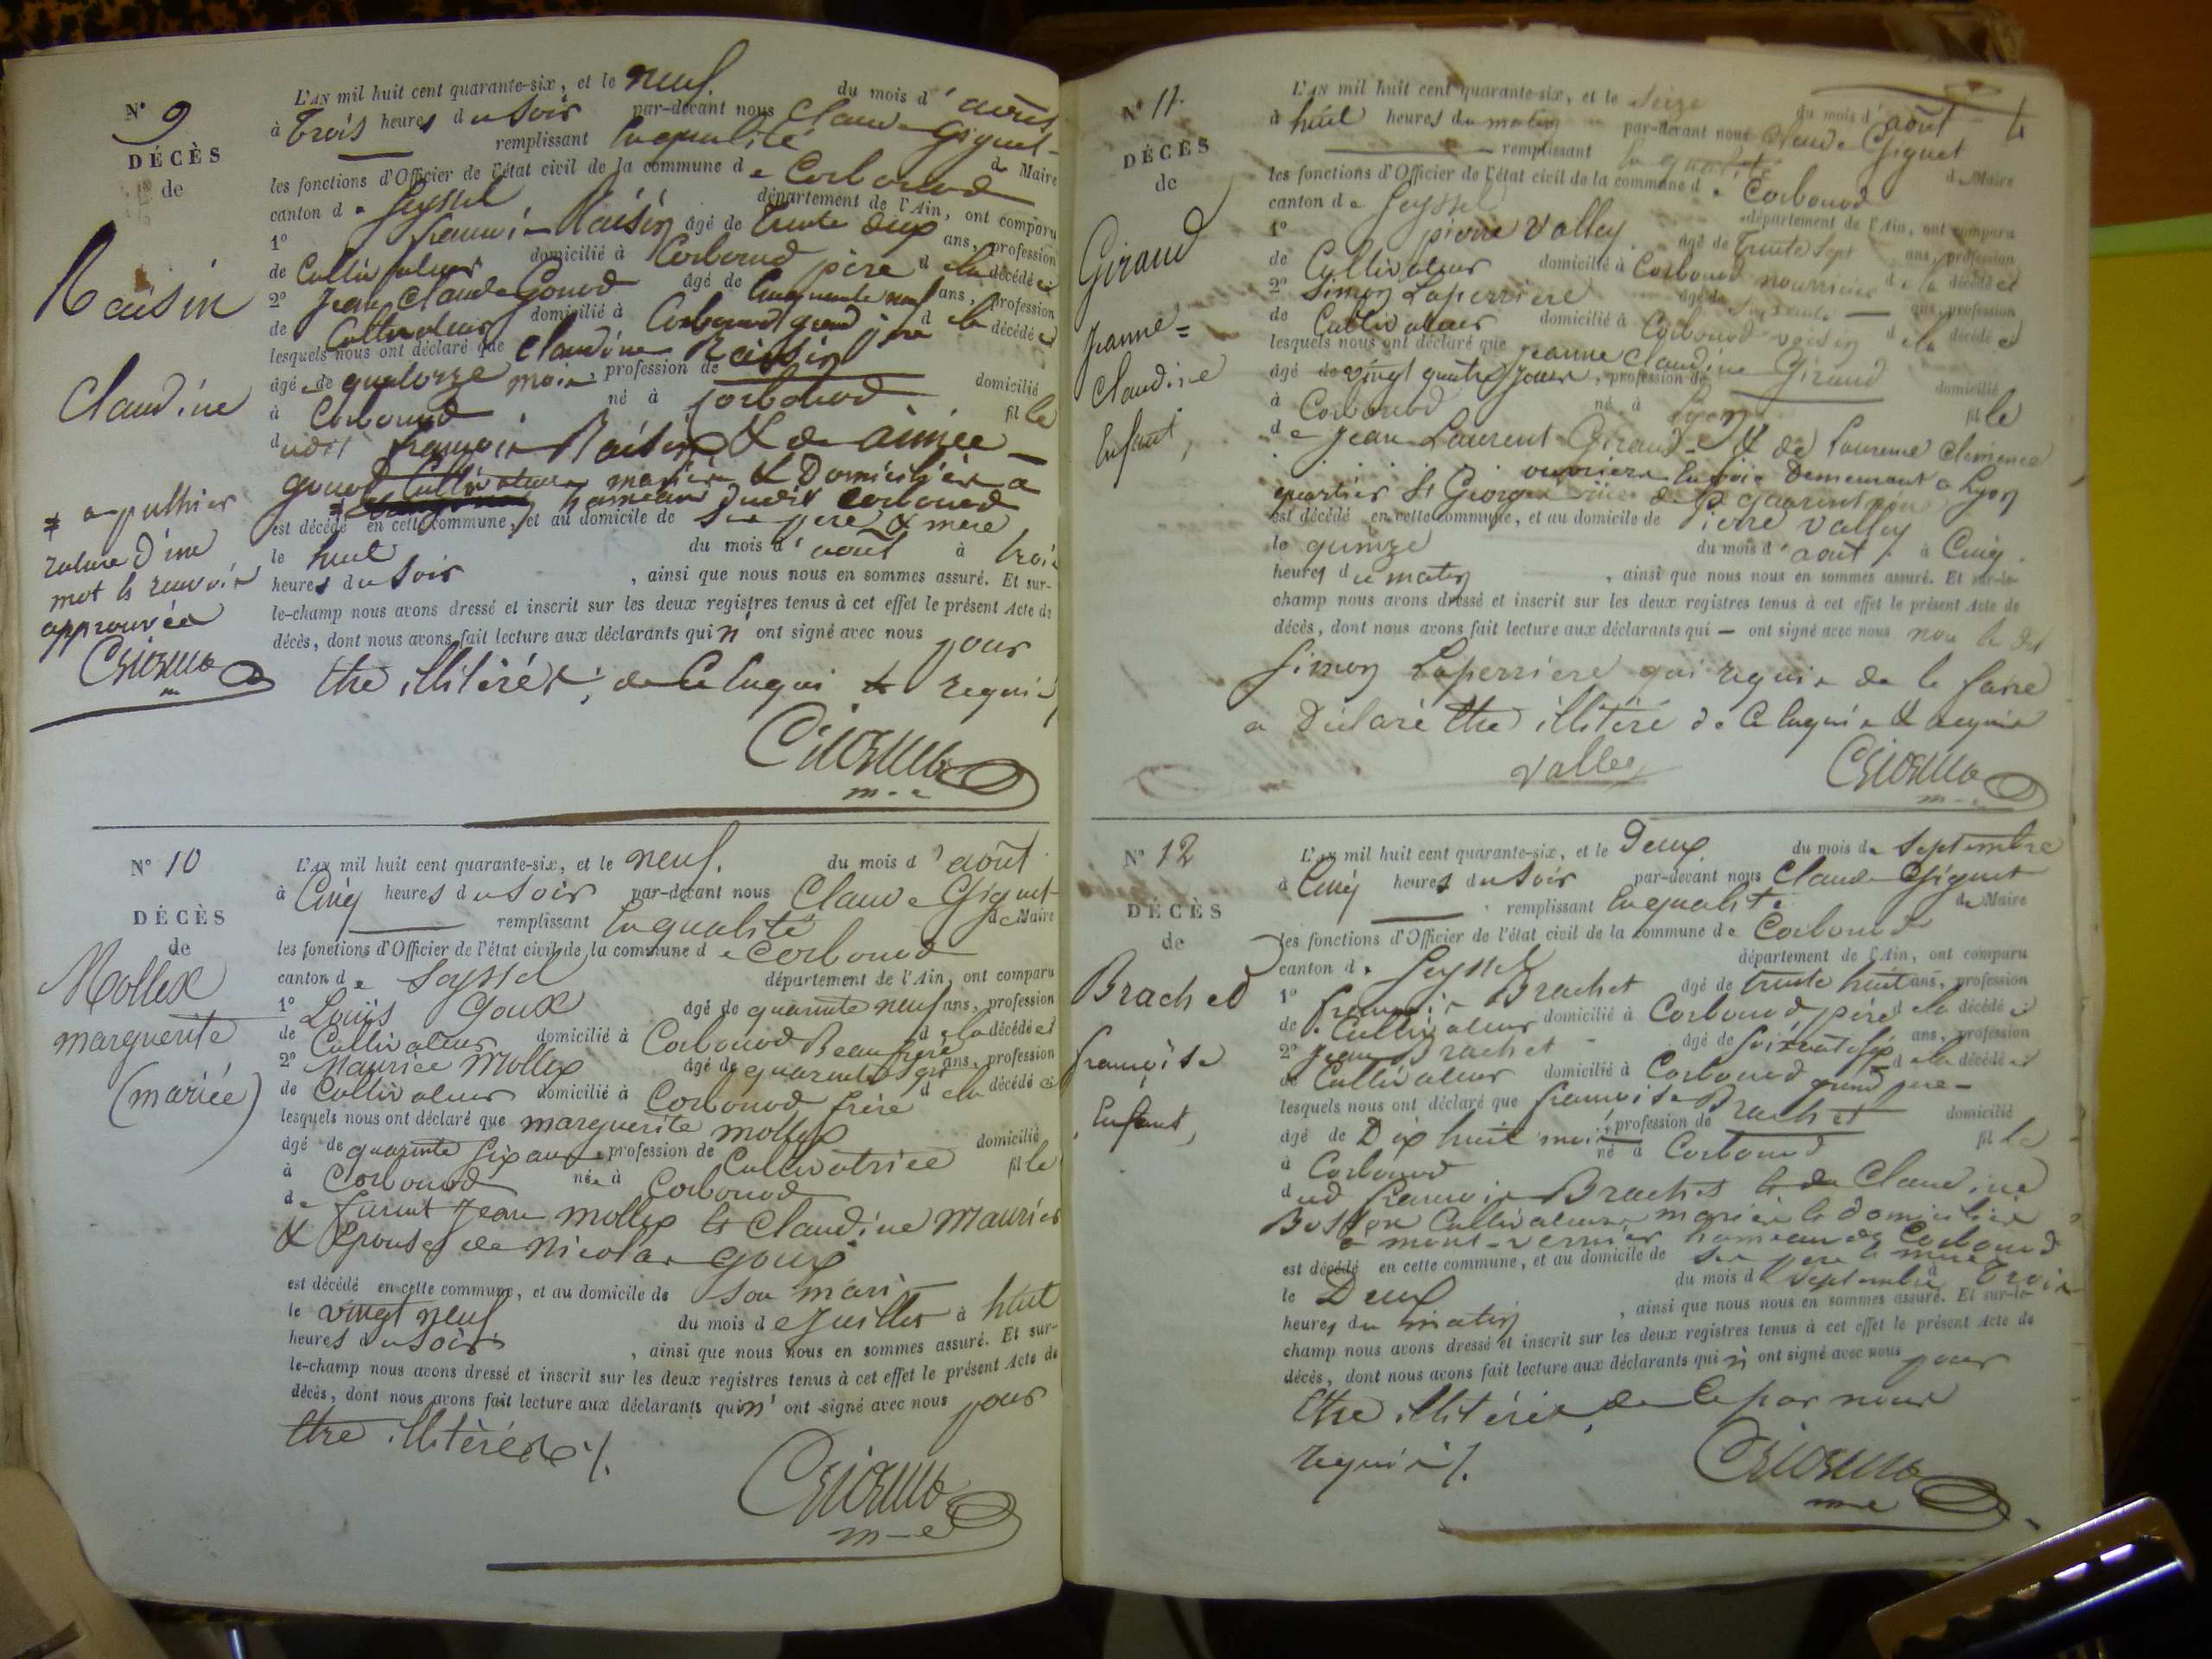 N° 9
DÉCÈS
de
Raisin
Claudine
L'AN mil huit cent quarante-six, et le neuf du mois d' août
à Trois heures du Soir par-devant nous Claude Giguet
remplissant en qualité de Maire
les fonctions d'Officier de l'état civil de la commune de Corbonod
canton de Seyssel département de l'Ain, ont comparu
1° françois Raisin âgé de Trente deux ans, profession
de Cultivateur domicilié à Corbonod père de la décédée
2° Jean Claude Gonod âgé de Cinquante neuf ans, profession
de Cultivateur domicilié à Corbonod grand père de la décédée
lesquels nous ont déclaré que Claudine Raisin
âgée de quatorze mois, profession de domicilié
à Corbonod né à Corbonod fille
dudit françois Raisin & de aimée
gonod Cultivateurs mariés & Domiciliés à
≠ hameau dudit Corbonod
est décédé en cette commune, et au domicile de Ses père & mere
le huit du mois d' août à trois
heures du Soir, ainsi que nous nous en sommes assuré. Et sur-
le-champ nous avons dressé et inscrit sur les deux registres tenus à cet effet le présent Acte de
décès, dont nous avons fait lecture aux déclarants qui n' ont signé avec nous pour
être illitérés; de Ce Enquis & requis
≠ a puthier
rature d'un
mot & renvoi
approuvés
m--e
N° 10
DÉCÈS
de
Mollex
marguerite
(mariée)
L'AN mil huit cent quarante-six, et le neuf du mois d' août
à Cinq heures du Soir par-devant nous Claude Giguet
remplissant en qualité de Maire
les fonctions d'Officier de l'état civil de la commune de Corbonod
canton de Seyssel département de l'Ain, ont comparu
1° Louis Goux âgé de quarante neuf ans, profession
de Cultivateur domicilié à Corbonod Beau frère de la décédée
2° Maurice Mollex âgé de quarante sept ans, profession
de Cultivateur domicilié à Corbonod frère de la décédée
lesquels nous ont déclaré que marguerite mollex
âgé de quarante six ans profession de Cultivatrice domicilié
à Corbonod née à Corbonod fille
de furent Jean mollex & Claudine Maurier
& Epouse de Nicolas goux
est décédé en cette commune, et au domicile de Son mari
le vingt neuf du mois de Juillet à huit
heures du Soir, ainsi que nous nous en sommes assuré. Et sur-
le-champ nous avons dressé et inscrit sur les deux registres tenus à cet effet le présent Acte de
décès, dont nous avons fait lecture aux déclarants qui n' ont signé avec nous pour
être illitérés /.
m--e
N° 11
DÉCÈS
de
Giraud
Jeanne=
Claudine
Enfant,
4
L'AN mil huit cent quarante-six, et le Seize du mois d' août
à huit heures du matin par-devant nous Claude Giguet
remplissant en qualité de Maire
les fonctions d'Officier de l'état civil de la commune de Corbonod
canton de Seyssel département de l'Ain, ont comparu
1° pierre Valley âgé de Trente Sept ans, profession
de Cultivateur domicilié à Corbonod nourricier de la décédée
2° Simon Laperriere âgé de Soixante ans, profession
de Cultivateur domicilié à Corbonod voisin de la décédée
lesquels nous ont déclaré que Jeanne Claudine Giraud
âgé de vingt quatre jours, profession de domicilié
à Corbonod né à Lyon fille
de Jean Laurent Giraud & de Laurence Clémence
ouvriers En Soie Demeurant a Lyon
quartier St George
est décédé en cette commune, et au domicile de Pierre Valley
le quinze du mois d' août à Cinq
heures du matin, ainsi que nous nous en sommes assuré. Et sur-le-
champ nous avons dressé et inscrit sur les deux registres tenus à cet effet le présent Acte de
décès, dont nous avons fait lecture aux déclarants qui — ont signé avec nous non le dit
Simon Laperriere qui requis de le faire
a Déclaré être illitéré de Ce Enquis & requis
Valley
m--e
N° 12
DÉCÈS
de
Brachet
françoise
Enfant,
L'AN mil huit cent quarante-six, et le Deux du mois de Septembre
à Cinq heures du Soir par-devant nous Claude Giguet
remplissant en qualité de Maire
les fonctions d'Officier de l'état civil de la commune de Corbonod
canton de Seyssel département de l'Ain, ont comparu
1° françois Brachet âgé de trente huit ans, profession
de Cultivateur domicilié à Corbonod père de la décédée
2° Jean Brachet âgé de Soixante Sept ans, profession
de Cultivateur domicilié à Corbonod grand père de la décédée
lesquels nous ont déclaré que françoise Brachet
âgé de Dix huit mois, profession de domicilié
à Corbonod né à Corbonod fille
dud françois Brachet & de Claudine
Cultivateurs mariés & domiciliés
à mont-vernier hameau de Corbonod
est décédé en cette commune, et au domicile de Ses père & mère
le Deux du mois de Septembre à Trois
heures du matin, ainsi que nous nous en sommes assuré. Et sur-le-
champ nous avons dressé et inscrit sur les deux registres tenus à cet effet le présent Acte de
décès, dont nous avons fait lecture aux déclarants qui n' ont signé avec nous pour
être illitérés, de Ce par nous
requis /.
m--e